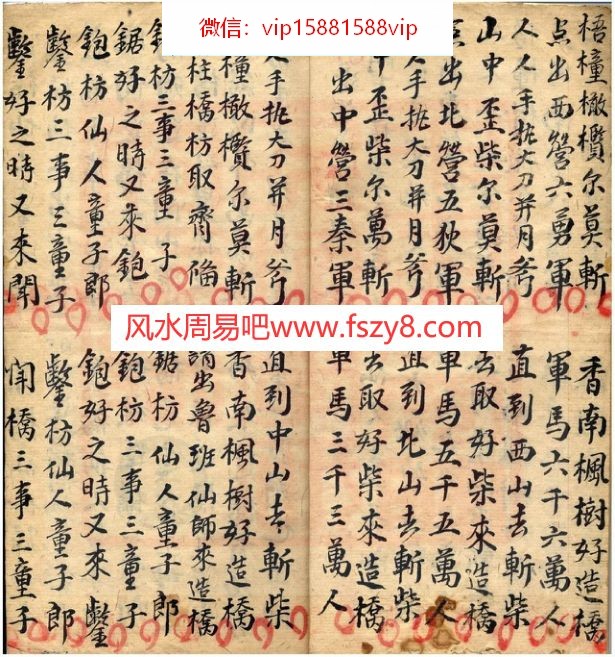 微信：vip15881588vip
梧橦橄欖尔莫斬 香南楓樹好造橋
点出西營六勇軍 軍馬六千六萬人
人人手拕大刀并月斧 直到西山去斬柴
山中歪柴尔莫斬 去取好柴來造橋
点出北營五狄軍 軍馬五千五萬人
人手拕大刀并月斧 直到北山去斬柴
中歪柴尔萬斬 去取好柴來造橋
出中營三秦軍 軍馬三千三萬人
人手拕大刀并月斧 直到中山去斬柴
橦橄欖尔莫斬 香南楓樹好造橋
柱橋枋取齊俻 請出魯班仙師來造橋
枋三事三童子 鋸枋仙人童子郎
鋸好之時又來鉋 鉋枋三事三童子
鉋枋仙人童子郎 鉋好之時又來鑿
鑿枋三事三童子 鑿枋仙人童子郎
鑿好之時又來閗 閗橋三事三童子
风水周易吧www.fszy8.com